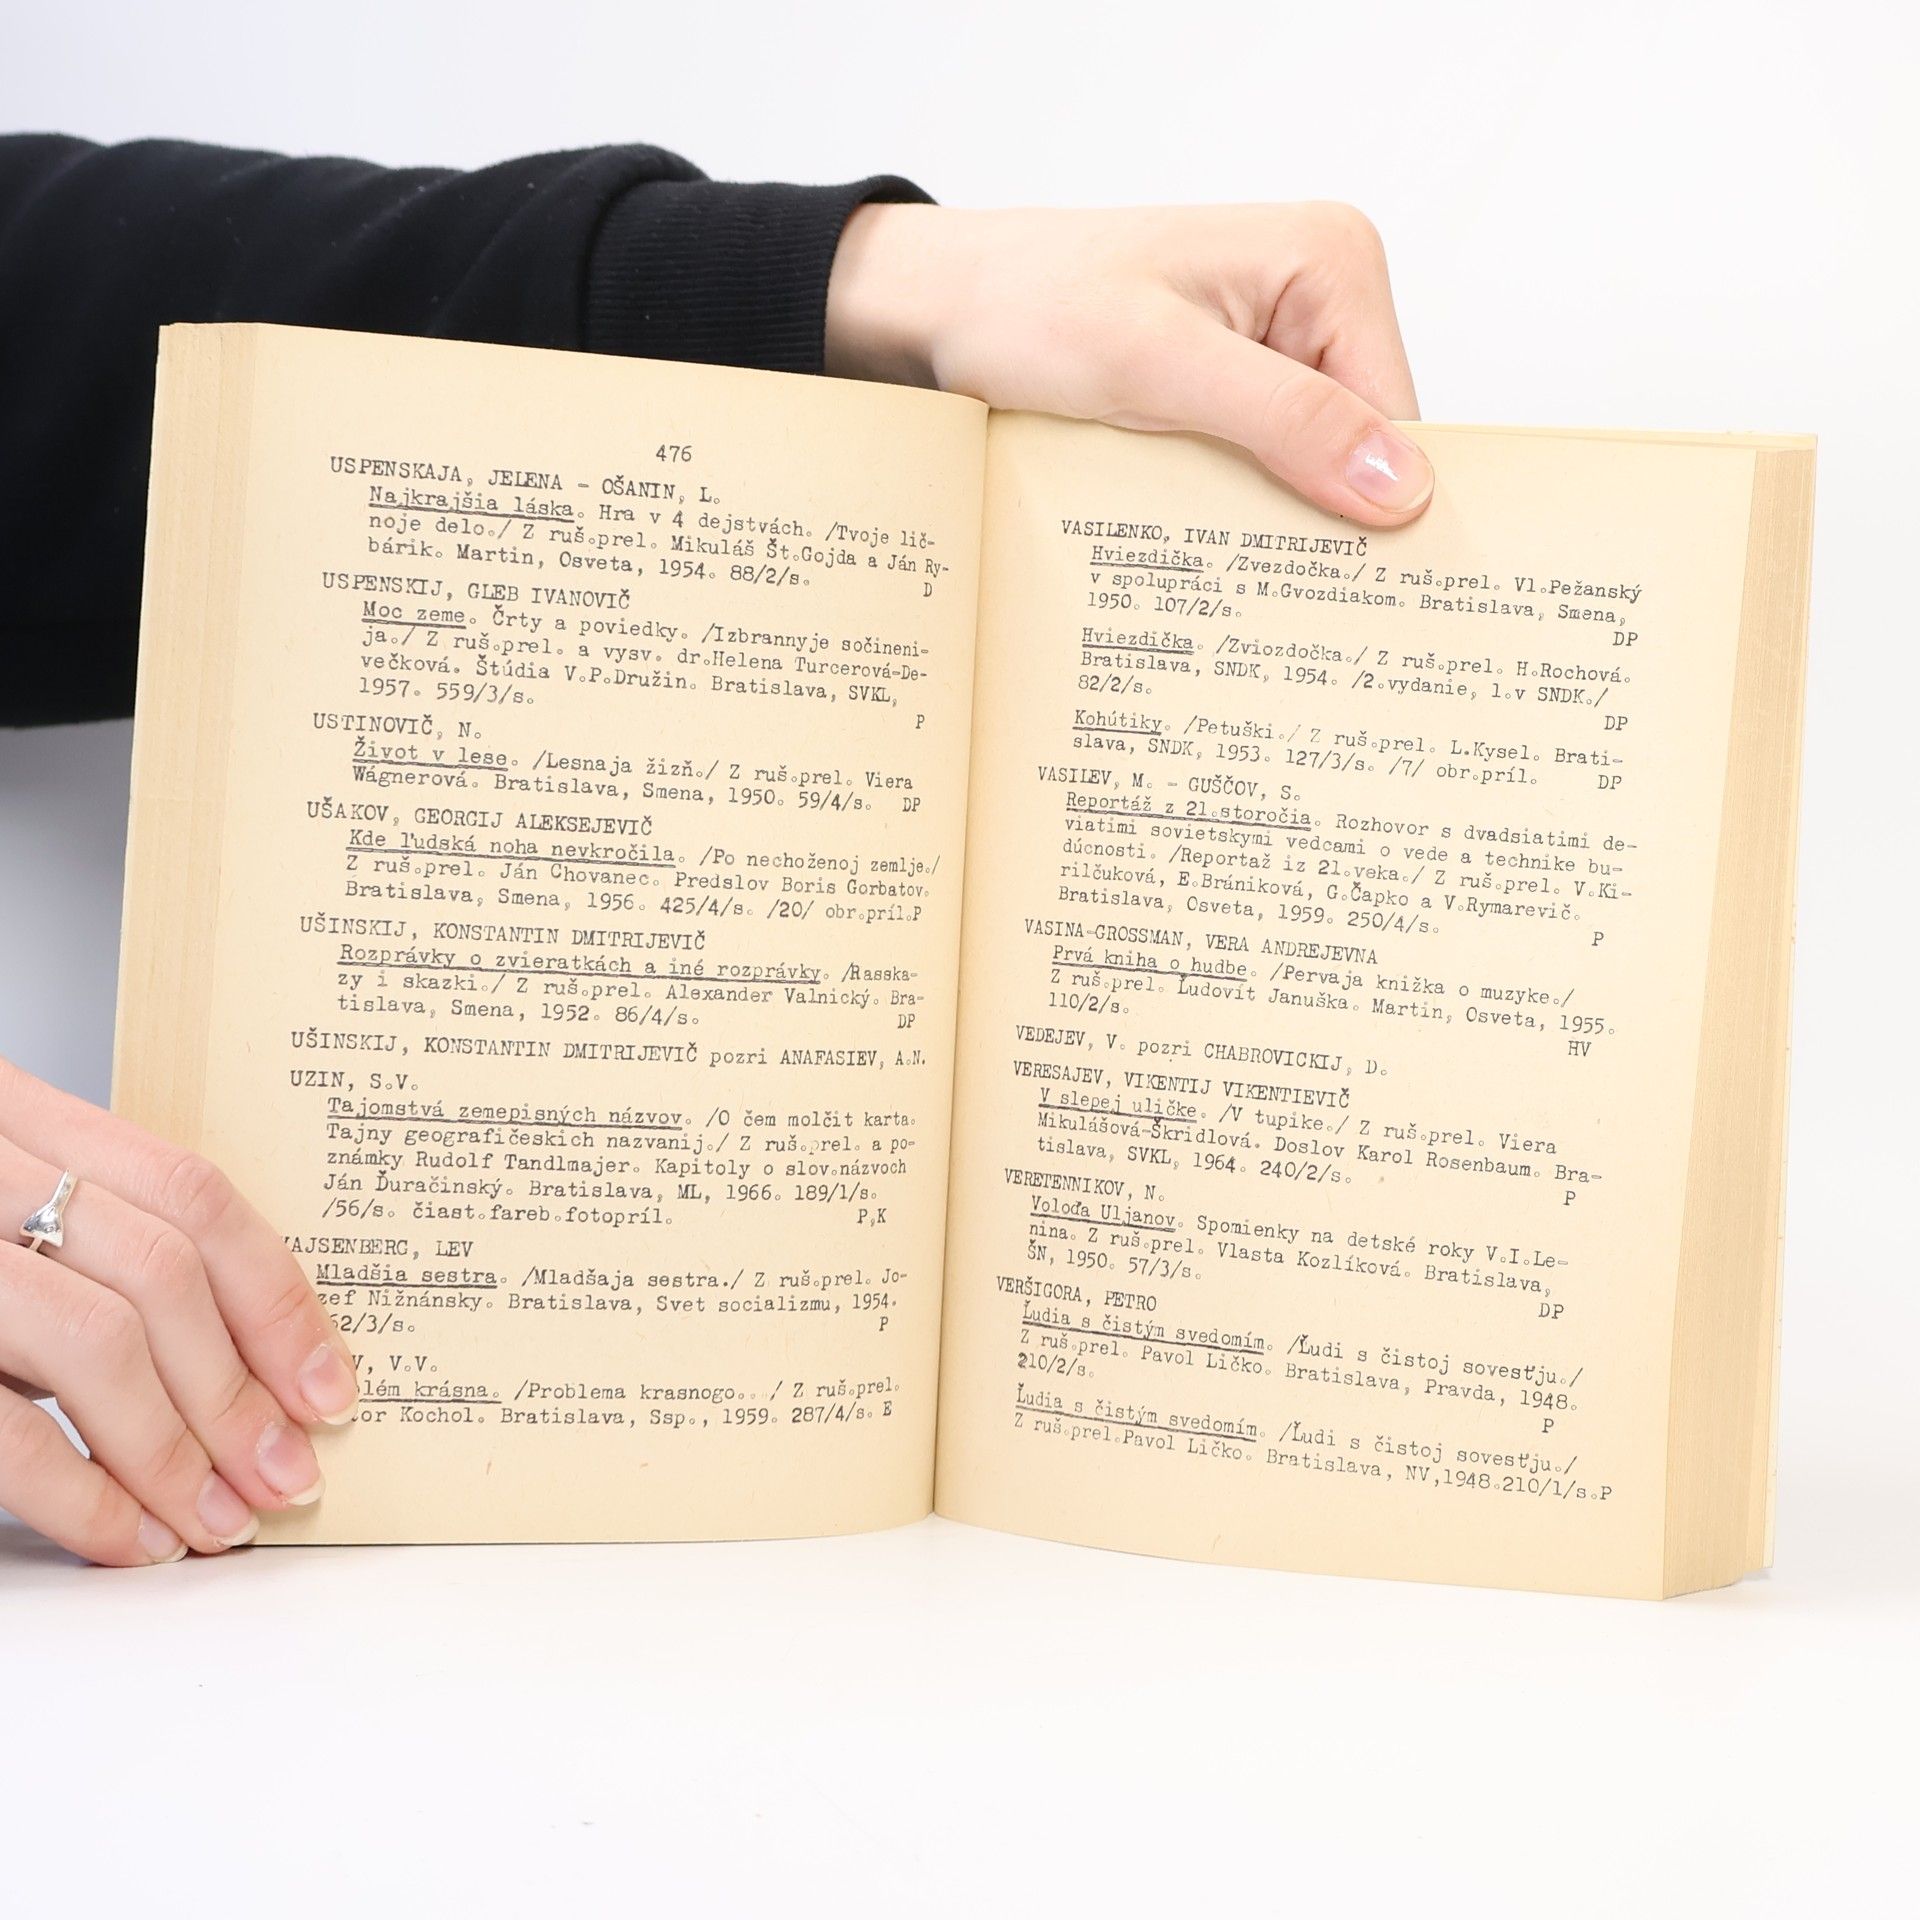 476
USPENSKAJA, JELENA - OŠANIN, L.
Najkrajšia láska. Hra v 4 dejstvách. /Tvoje lič-
noje delo./ Z ruš.prel. Mikuláš Št.Gojda a Ján Ry-
bárik. Martin, Osveta, 1954. 88/2/s.
D
USPENSKIJ, GLEB IVANOVIČ
Moc zeme. Črty a poviedky. /Izbrannyje sočineni-
ja./ Z ruš.prel. a vysv. dr.Helena Turcerová-De-
večková. Štúdia V.P.Družin. Bratislava, SVKL,
1957. 559/3/s.
P
USTINOVIČ, N.
Život v lese. /Lesnaja žizň./ Z ruš.prel. Viera
Wágnerová. Bratislava, Smena, 1950. 59/4/s. DP
UŠAKOV, GEORGIJ ALEKSEJEVIČ
Kde ľudská noha nevkročila. /Po nechoženoj zemlje./
Z ruš.prel. Ján Chovanec. Predslov Boris Gorbatov.
Bratislava, Smena, 1956. 425/4/s. /20/ obr.príl.P
UŠINSKIJ, KONSTANTIN DMITRIJEVIČ
Rozprávky o zvieratkách a iné rozprávky. /Rasska-
zy i skazki./ Z ruš.prel. Alexander Valnický. Bra-
tislava, Smena, 1952. 86/4/s. DP
UŠINSKIJ, KONSTANTIN DMITRIJEVIČ pozri ANAFASIEV, A.N.
UZIN, S.V.
Tajomstvá zemepisných názvov. /O čem molčit karta.
Tajny geografičeskich nazvanij./ Z ruš.prel. a po-
známky Rudolf Tandlmajer. Kapitoly o slov.názvoch
Ján Ďuračinský. Bratislava, ML, 1966. 189/1/s.
/56/s. čiast.fareb.fotopríl. P,K
VAJSENBERG, LEV
Mladšia sestra. /Mladšaja sestra./ Z ruš.prel. Jo-
zef Nižnánsky. Bratislava, Svet socializmu, 1954.
62/3/s. P
V, V.V.
lém krásna. /Problema krasnogo../ Z ruš.prel.
tor Kochol. Bratislava, Ssp., 1959. 287/4/s. E
VASILENKO, IVAN DMITRIJEVIČ
Hviezdička. /Zvezdočka./ Z ruš.prel. Vl.Pežanský
v spolupráci s M.Gvozdiakom. Bratislava, Smena,
1950. 107/2/s.
DP
Hviezdička. /Zviozdočka./ Z ruš.prel. H.Rochová.
Bratislava, SNDK, 1954. /2.vydanie, 1.v SNDK./
82/2/s.
DP
Kohútiky. /Petuški./ Z ruš.prel. L.Kysel. Brati-
slava, SNDK, 1953. 127/3/s. /7/ obr.príl. DP
VASILEV, M. - GUŠČOV, S.
Reportáž z 21.storočia. Rozhovor s dvadsiatimi de-
viatimi sovietskymi vedcami o vede a technike bu-
dúcnosti. /Reportaž iz 21.veka./ Z ruš.prel. V.Ki-
rilčuková, E.Brániková, G.Čapko a V.Rymarevič.
Bratislava, Osveta, 1959. 250/4/s.
P
VASINA-GROSSMAN, VERA ANDREJEVNA
Prvá kniha o hudbe. /Pervaja knižka o muzyke./
Z ruš.prel. Ľudovít Januška. Martin, Osveta, 1955.
110/2/s.
HV
VEDEJEV, V. pozri CHABROVICKIJ, D.
VERESAJEV, VIKENTIJ VIKENTIEVIČ
V slepej uličke. /V tupike./ Z ruš.prel. Viera
Mikulášová-Škridlová. Doslov Karol Rosenbaum. Bra-
tislava, SVKL, 1964. 240/2/s.
P
VERETENNIKOV, N.
Voloďa Uljanov. Spomienky na detské roky V.I.Le-
nina. Z ruš.prel. Vlasta Kozlíková. Bratislava,
ŠN, 1950. 57/3/s.
DP
VERŠIGORA, PETRO
Ľudia s čistým svedomím. /Ľudi s čistoj sovesťju./
Z ruš.prel. Pavol Ličko. Bratislava, Pravda, 1948.
210/2/s.
P
Ľudia s čistým svedomím. /Ľudi s čistoj sovesťju./
Z ruš.prel.Pavol Ličko. Bratislava, NV,1948.210/1/s.P